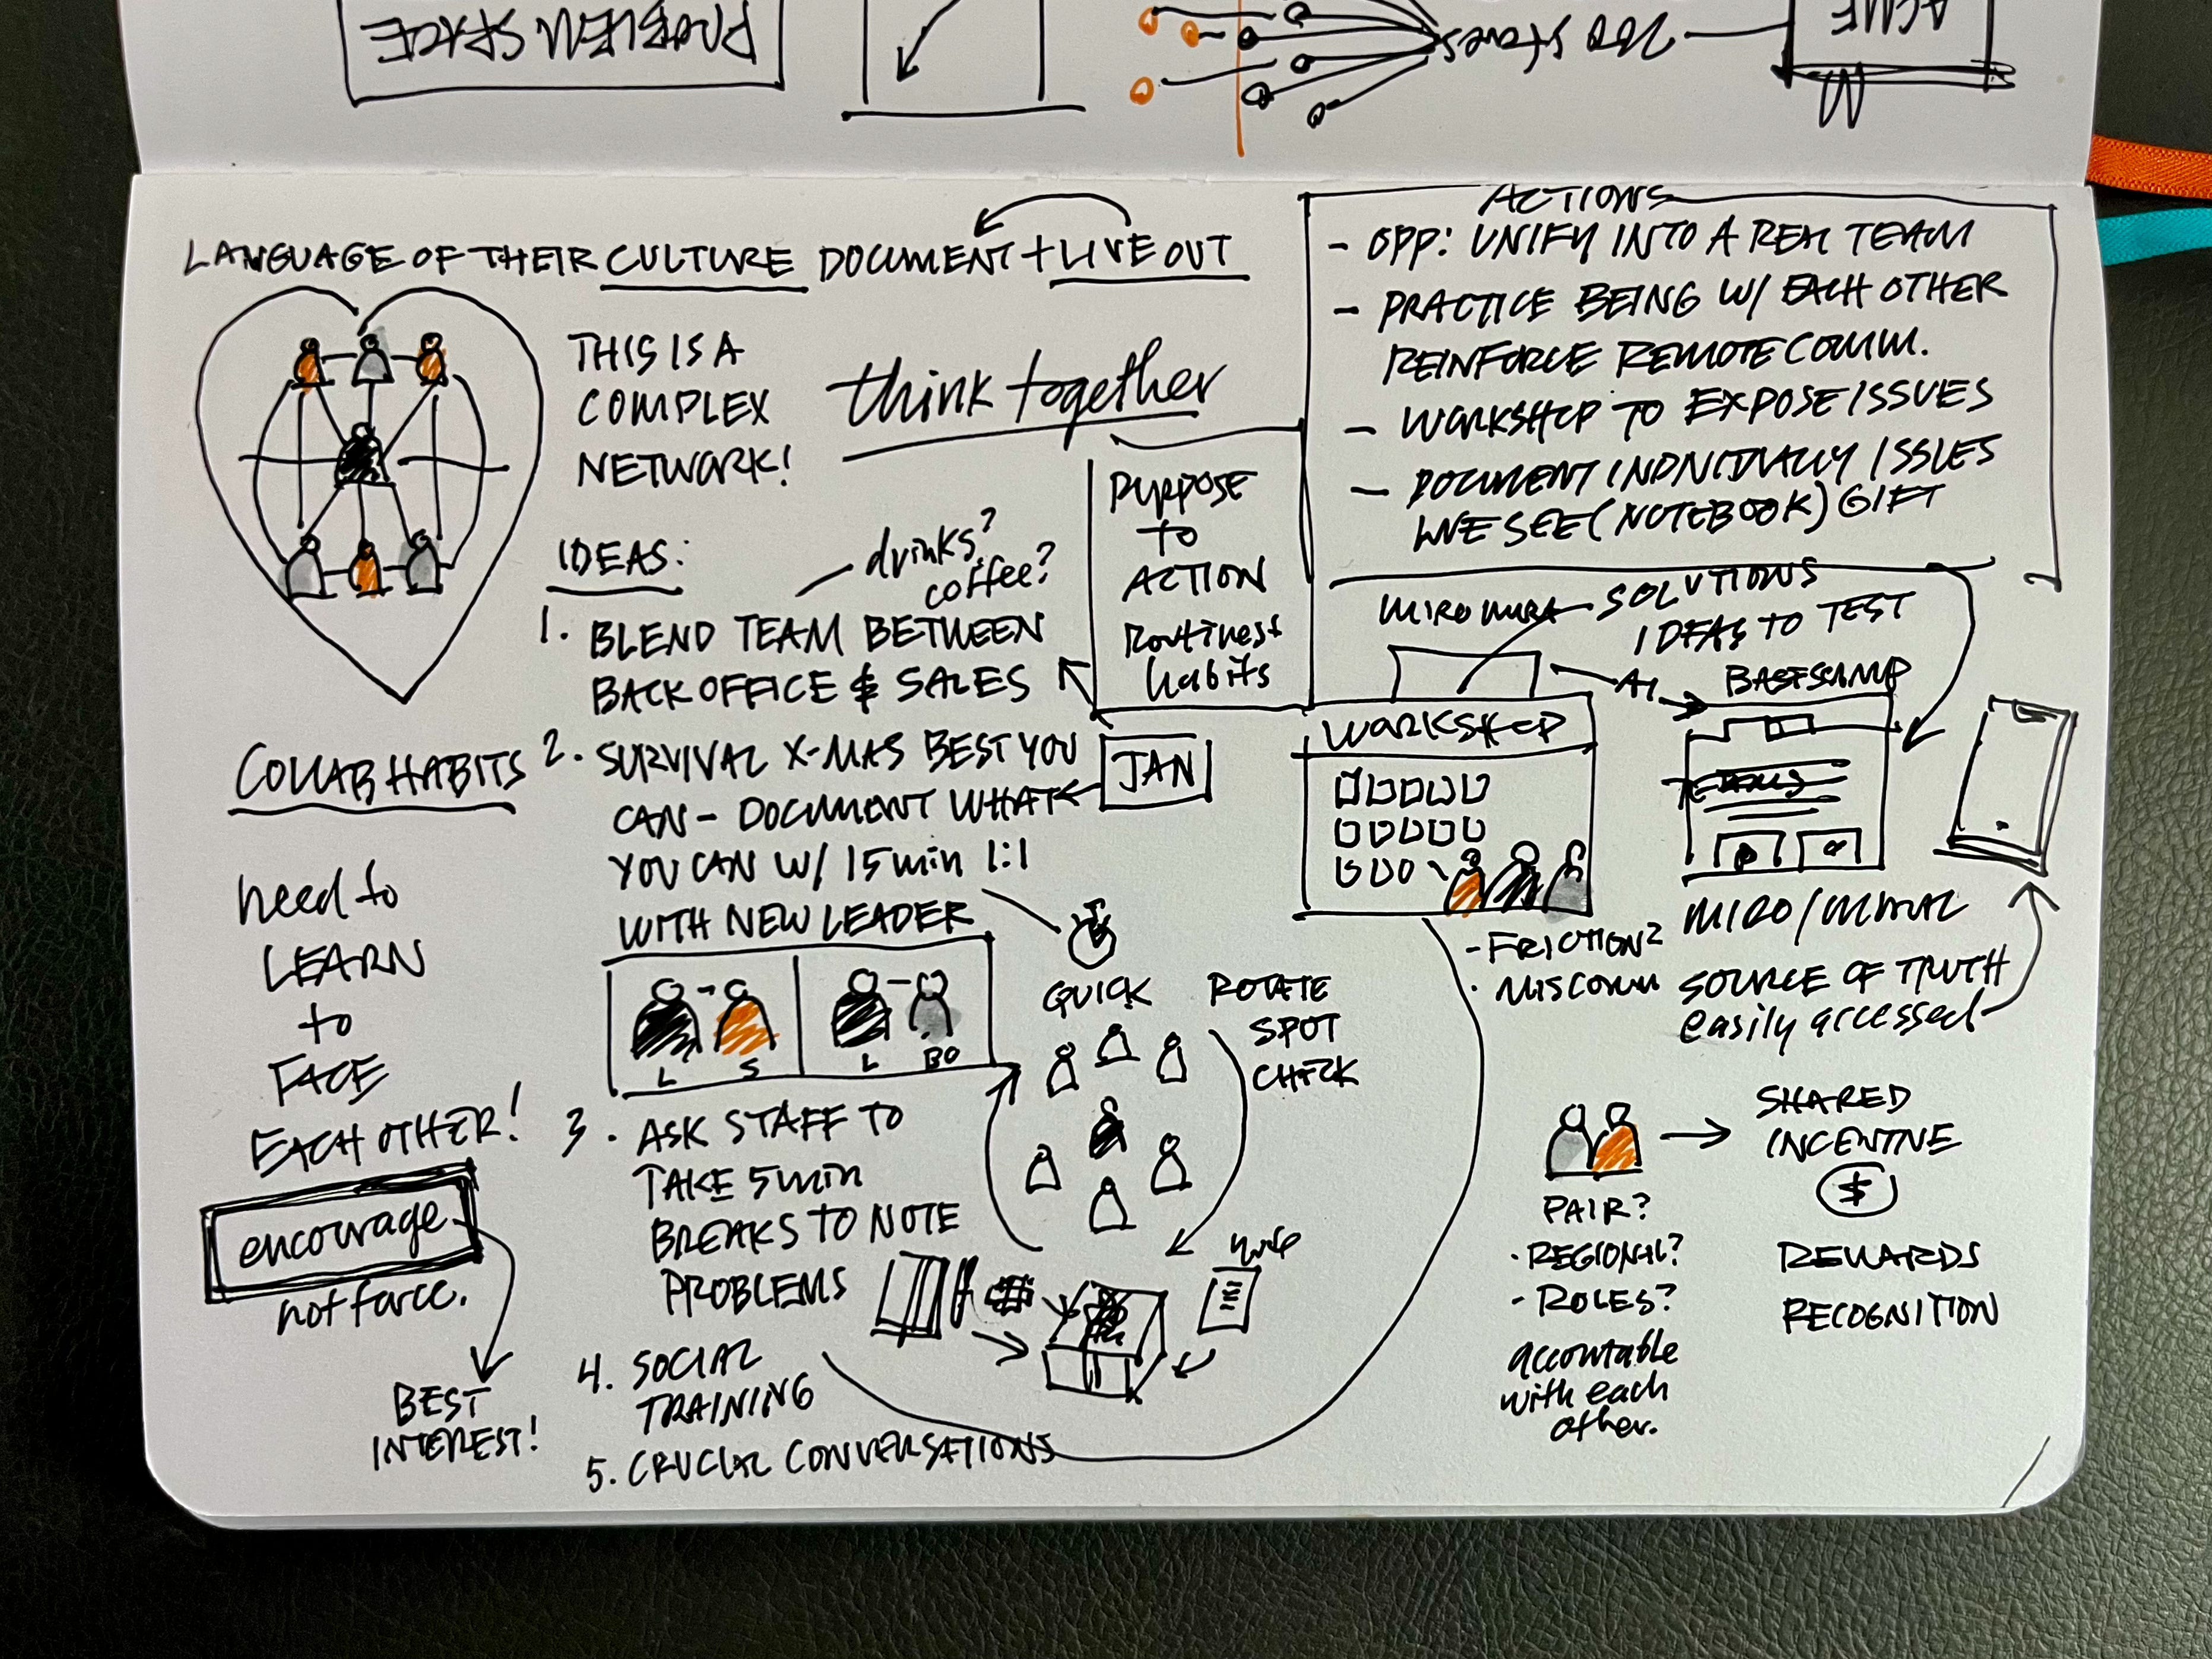 PROBLEM SPACE
200 stores
ACME
LANGUAGE OF THEIR CULTURE DOCUMENT + LIVE OUT
THIS IS A
COMPLEX
NETWORK!
think together
PURPOSE
to
ACTION
Routines +
habits
IDEAS:
drinks?
coffee?
1. BLEND TEAM BETWEEN
BACK OFFICE & SALES
2. SURVIVAL X-MAS BEST YOU
CAN - DOCUMENT WHAT
YOU CAN W/ 15 min 1:1
WITH NEW LEADER
JAN
L S
L BO
QUICK
ROTATE
SPOT
CHECK
3. ASK STAFF TO
TAKE 5 min
BREAKS TO NOTE
PROBLEMS
note
4. SOCIAL
TRAINING
5. CRUCIAL CONVERSATIONS
COLLAB HABITS
need to
LEARN
to
FACE
EACH OTHER!
encourage
not force.
BEST
INTEREST!
ACTIONS
- OPP: UNIFY INTO A REAL TEAM
- PRACTICE BEING W/ EACH OTHER
REINFORCE REMOTE COMM.
- WORKSHOP TO EXPOSE ISSUES
- DOCUMENT INDIVIDUALLY ISSUES
WE SEE (NOTEBOOK) GIFT
MIRO
SOLUTIONS
IDEAS TO TEST
AI
BASECAMP
WORKSHOP
TEAMS
- FRICTION?
· MISCOMM
MIRO/MURAL
SOURCE OF TRUTH
easily accessed
PAIR?
· REGIONAL?
- ROLES?
accountable
with each
other.
SHARED
INCENTIVE
$
REWARDS
RECOGNITION